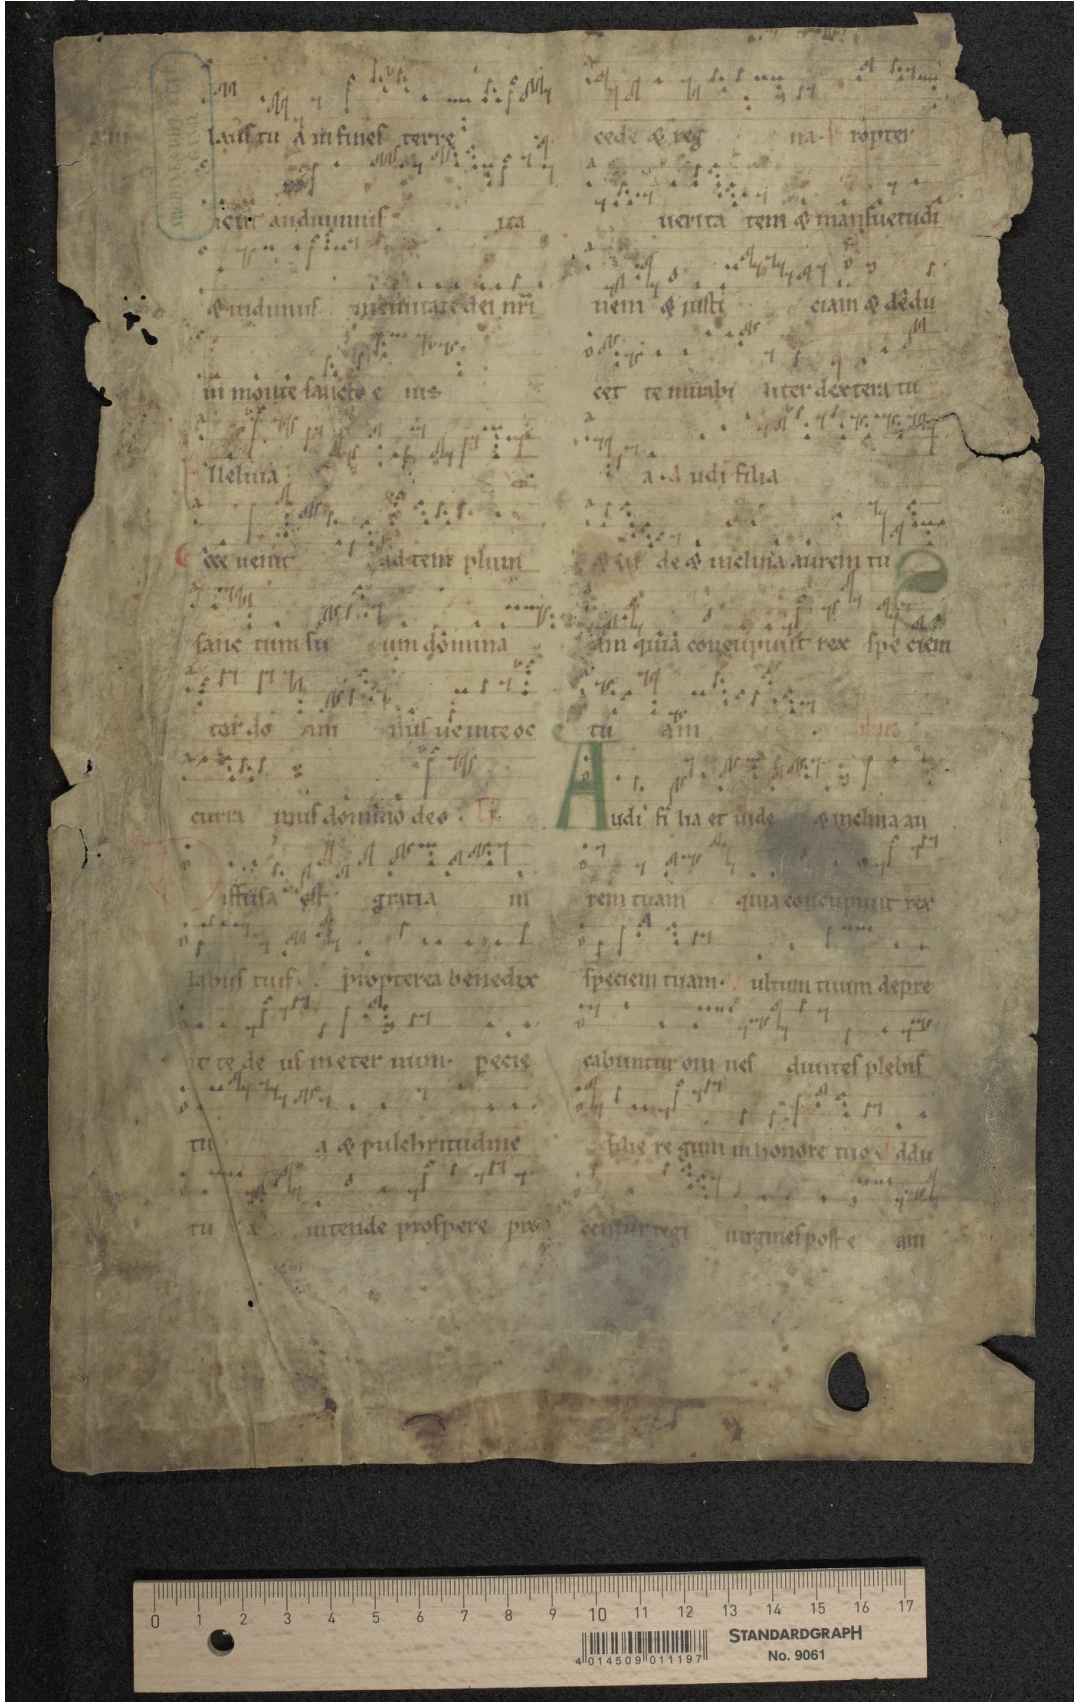 laus tu a in fines terre
audiuimus ita
& uidimus in ciuitate dei nr̄i
in monte sancto e ius
lleluia
cce uenit ad tem plum
sanc tum su um domina
tor do am nus uenite oc
curra mus domino deo
iffusa est gratia in
labiis tuis propterea benedix
it te de us in eter num pecie
tu a & pulchritudine
tu a intende prospere pro
cede & reg na ropter
uerita tem & mansuetudi
nem & justi ciam & dedu
cet te mirabi liter dextera tu
a · A udi filia
& ui de & inclina aurem tu
am quia concupiuit rex spe ciem
tu am
Audi fi lia et uide & inclina au
rem tuam quia concupiuit rex
speciem tuam · ultum tuum depre
cabuntur om nes diuites plebis
filie re gum in honore tuo addu
centur regi uirgines post e am
0 1 2 3 4 5 6 7 8 9 10 11 12 13 14 15 16 17
STANDARDGRAPH
No. 9061
4 014509 011197